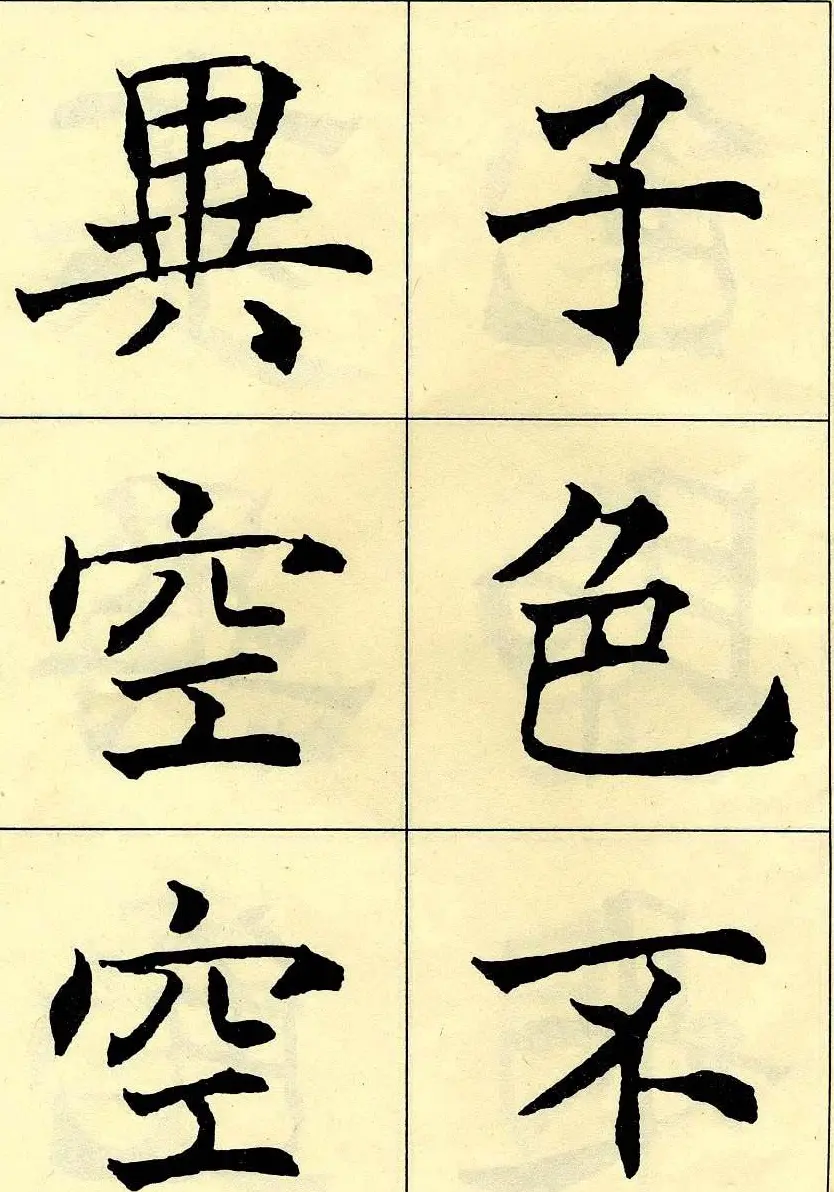 子色不
異空空